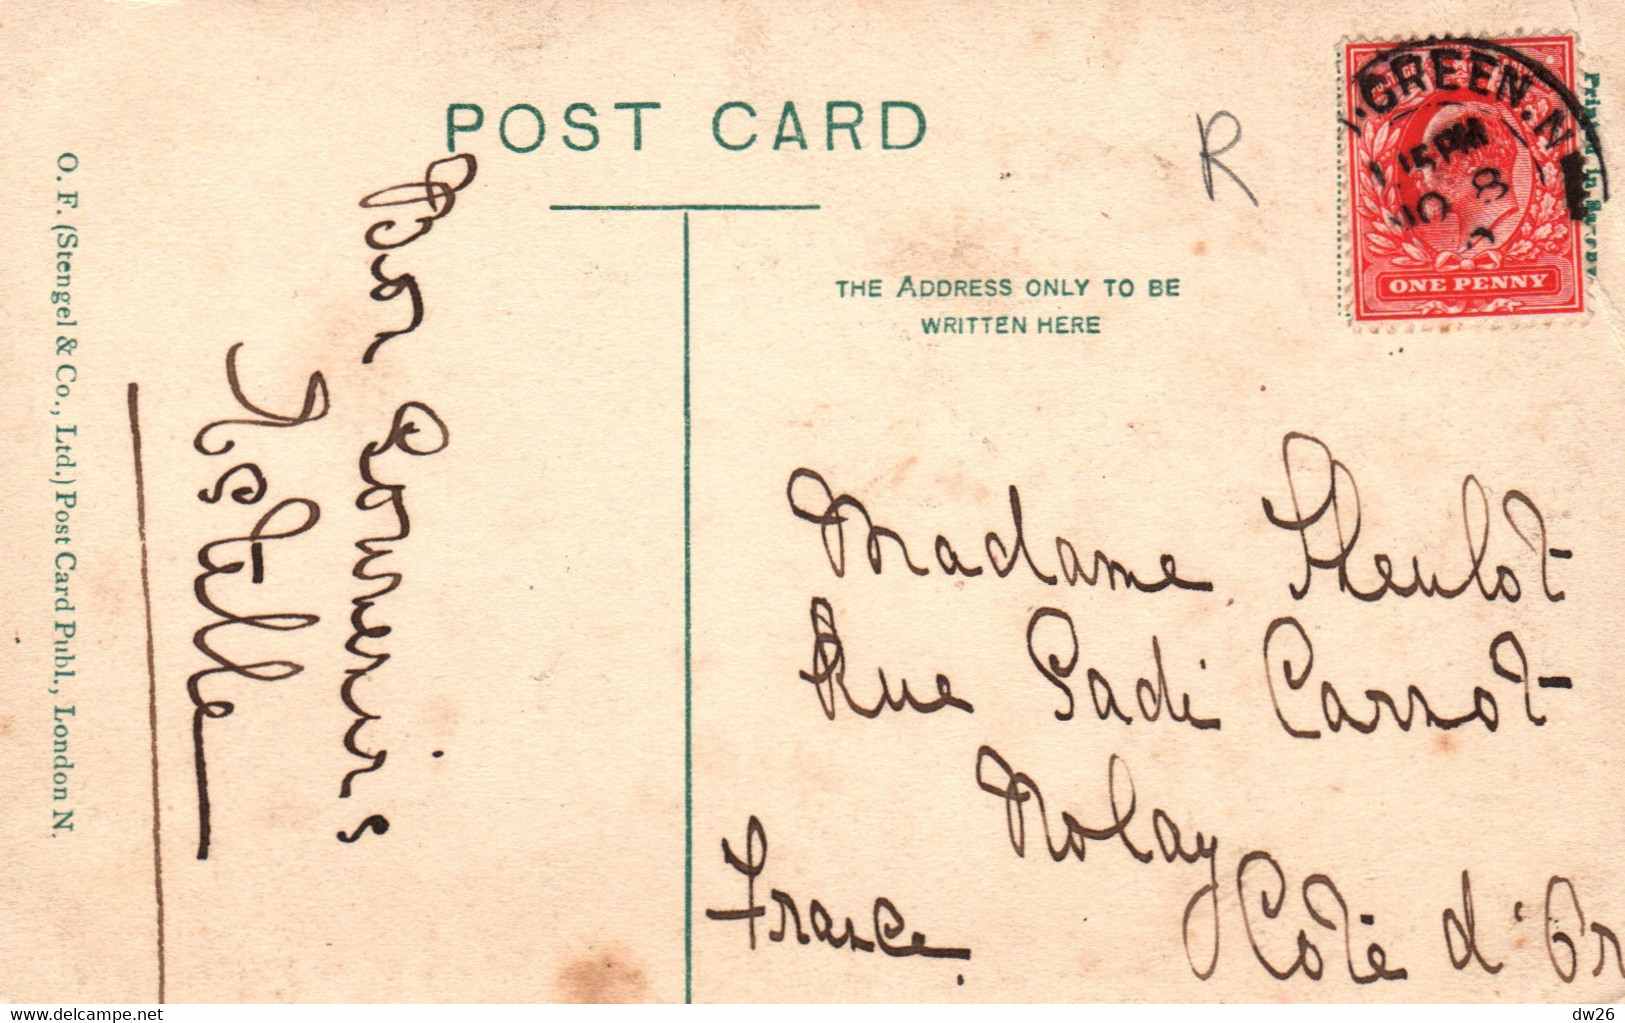 POST CARD
R
.GREEN.N
.15PM
NO 8
ONE PENNY
Printed in Saxony.
THE ADDRESS ONLY TO BE
WRITTEN HERE
O. F. (Stengel & Co., Ltd.) Post Card Publ., London N.
Bon Souvenirs
Estelle
Madame Theulot
Rue Sadi Carnot
Nolay
Côte d'Or
France.
delcampe.net
dw26